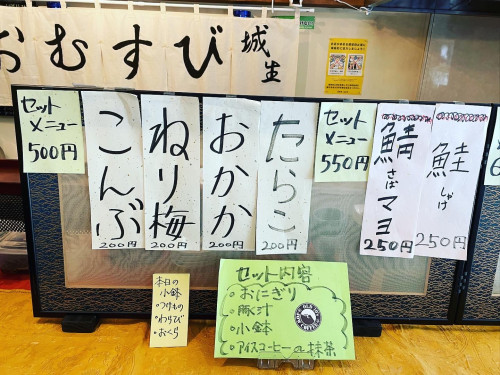 おむすび 城生
セット
メニュー
500円
こんぶ
200円
ねり梅
200円
おかか
200円
たらこ
200円
セット
メニュー
550円
鯖さばマヨ
250円
鮭しゃけ
250円
本日の
小鉢
・つけもの
・わらび
・おくら
セット内容
・おにぎり
・豚汁
・小鉢
・アイスコーヒーor抹茶
COFFEE